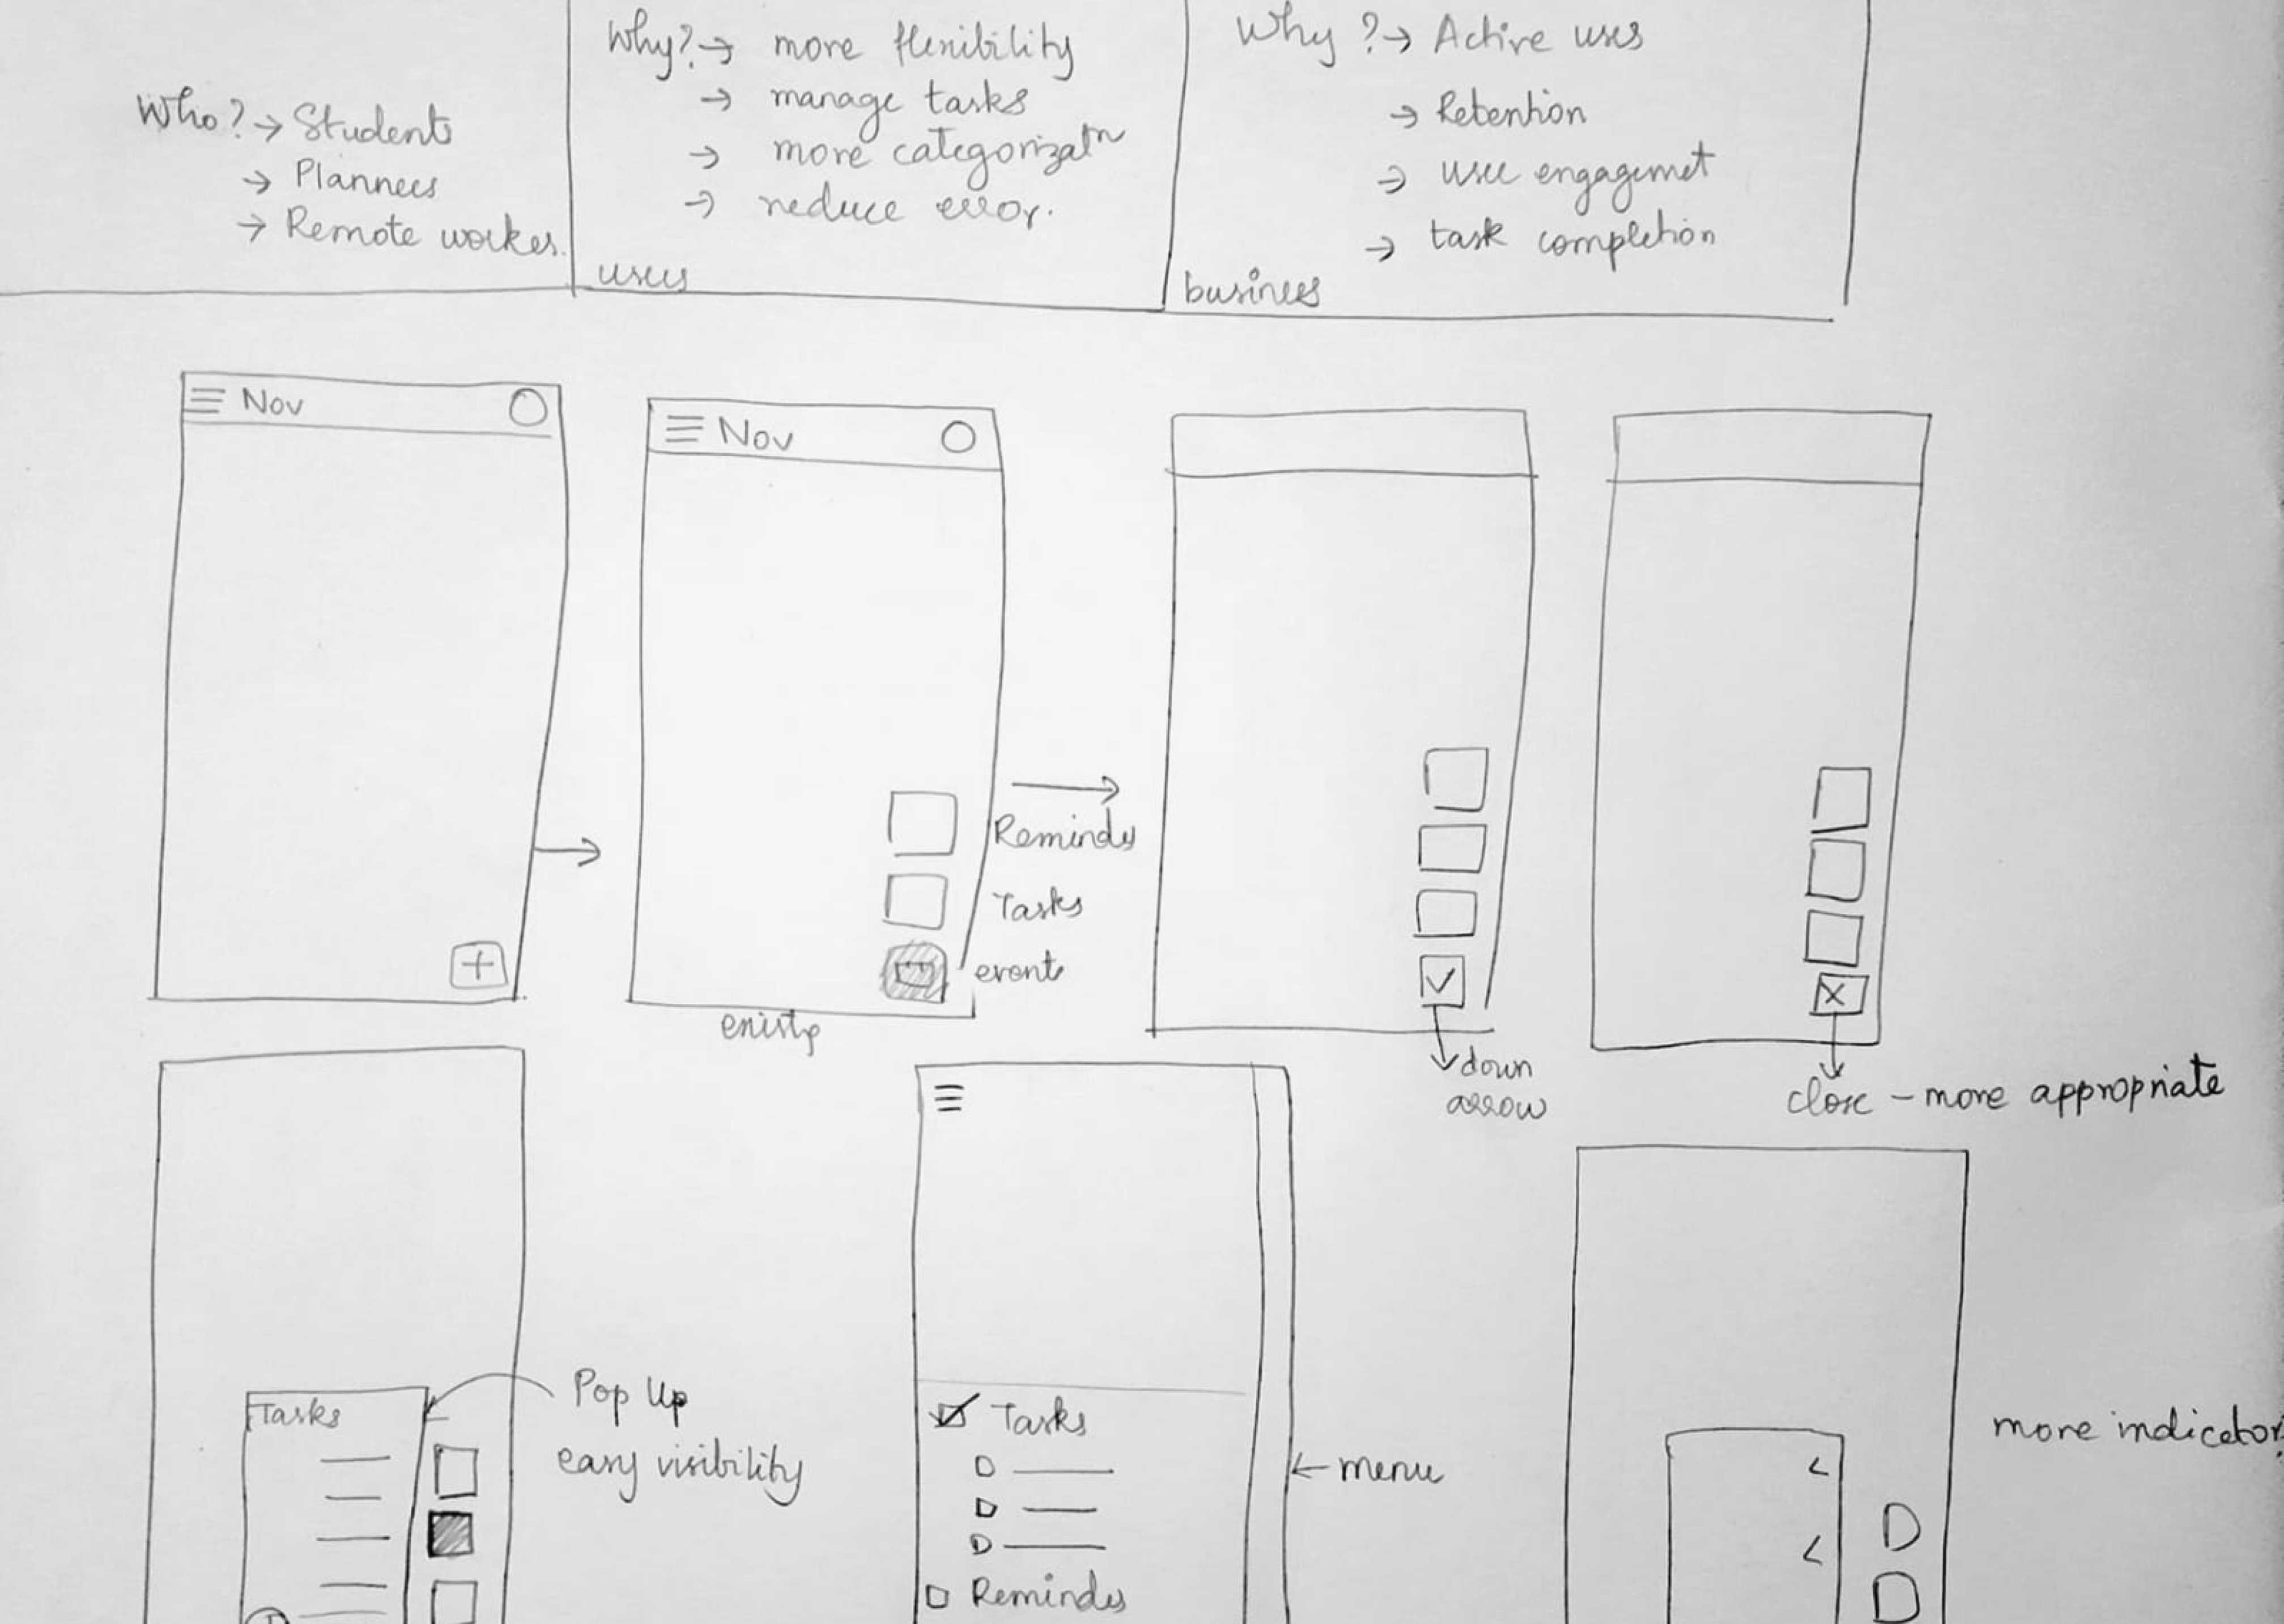 Who? → Students
→ Planners
→ Remote workers.
Why? → more flexibility
→ manage tasks
→ more categorizatn
→ reduce error.
users
Why? → Active users
→ Retention
→ user engagemet
→ task completion
business
Nov
Nov
Reminders
Tasks
event
down
arrow
close – more appropriate
Tasks
Pop Up
easy visibility
Tasks
Reminders
← menu
more indicator